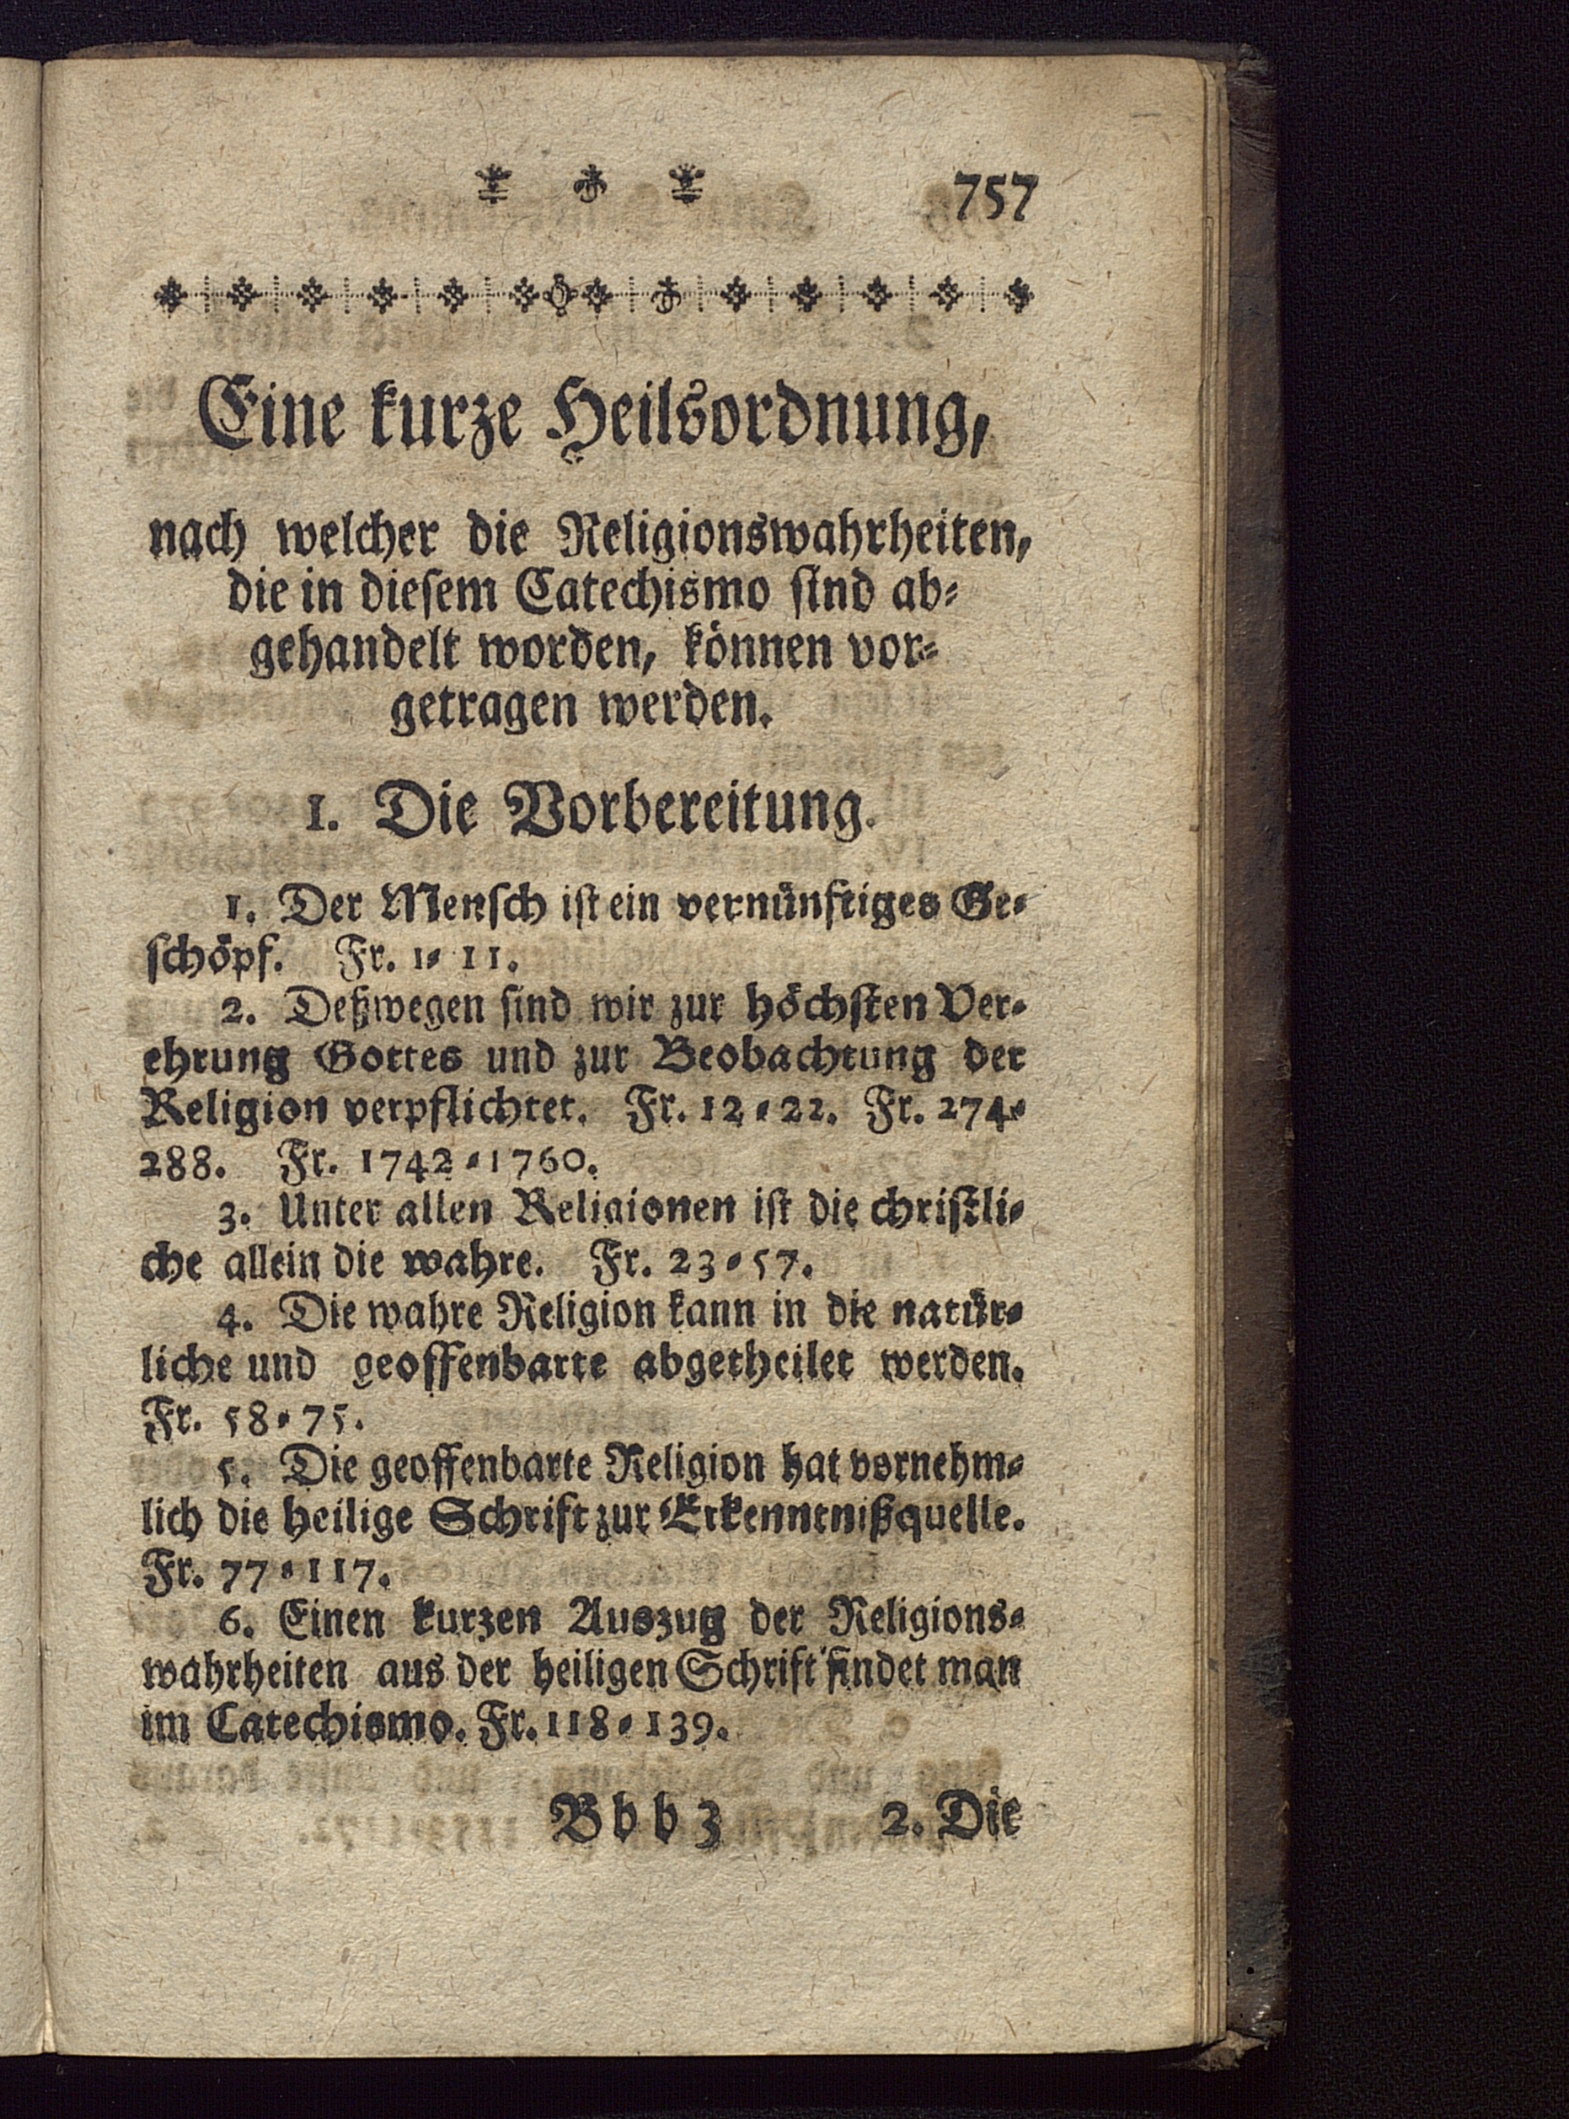 757
Eine kurze Heilsordnung,
nach welcher die Religionswahrheiten,
die in dieſem Catechismo ſind ab⸗
gehandelt worden, können vor⸗
getragen werden.
1. Die Vorbereitung.
1. Der Menſch iſt ein vernünftiges Ge⸗
ſchöpf. Fr. 1⸗11.
2. Deßwegen ſind wir zur höchſten Ver⸗
ehrung Gottes und zur Beobachtung der
Religion verpflichtet. Fr. 12⸗22. Fr. 274⸗
288. Fr. 1742⸗1760.
3. Unter allen Religionen iſt die chriſtli⸗
che allein die wahre. Fr. 23⸗57.
4. Die wahre Religion kann in die natür⸗
liche und geoffenbarte abgetheilet werden.
Fr. 58⸗75.
5. Die geoffenbarte Religion hat vornehm⸗
lich die heilige Schrift zur Erkenntnißquelle.
Fr. 77⸗117.
6. Einen kurzen Auszug der Religions⸗
wahrheiten aus der heiligen Schrift findet man
im Catechismo. Fr. 118⸗139.
Bbb 3 2. Die